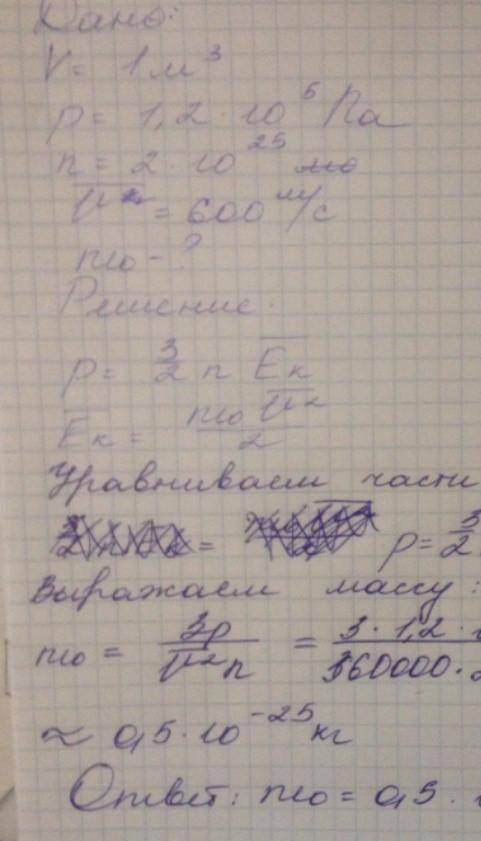 Дано:
V = 1 м³
p = 1,2 · 10⁵ Па
n = 2 · 10²⁵
v̅² = 600 м/с
m₀ - ?
Решение.
p = 3/2 n E̅к
E̅к = m₀ v̅²/2
Уравниваем части
= p = 3/2
Выражаем массу:
m₀ = 3p/v̅²n = 3 · 1,2 ·/360000 ·
≈ 0,5 · 10⁻²⁵ кг
Ответ: m₀ = 0,5 ·